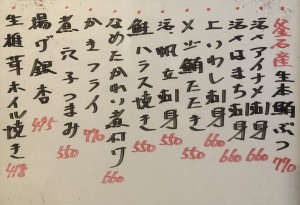 釜石産生本鮪ぶつ 770
活〆アイナメ刺身 660
活〆はまち刺身 660
上いわし刺身 660
活帆立刺身 550
メジ鮪たたき 550
鮭ハラス焼き 550
なめたかれい煮付け 660
かきフライ 770
煮穴子つまみ 550
揚げ銀杏 495
生椎茸ホイル焼き 418